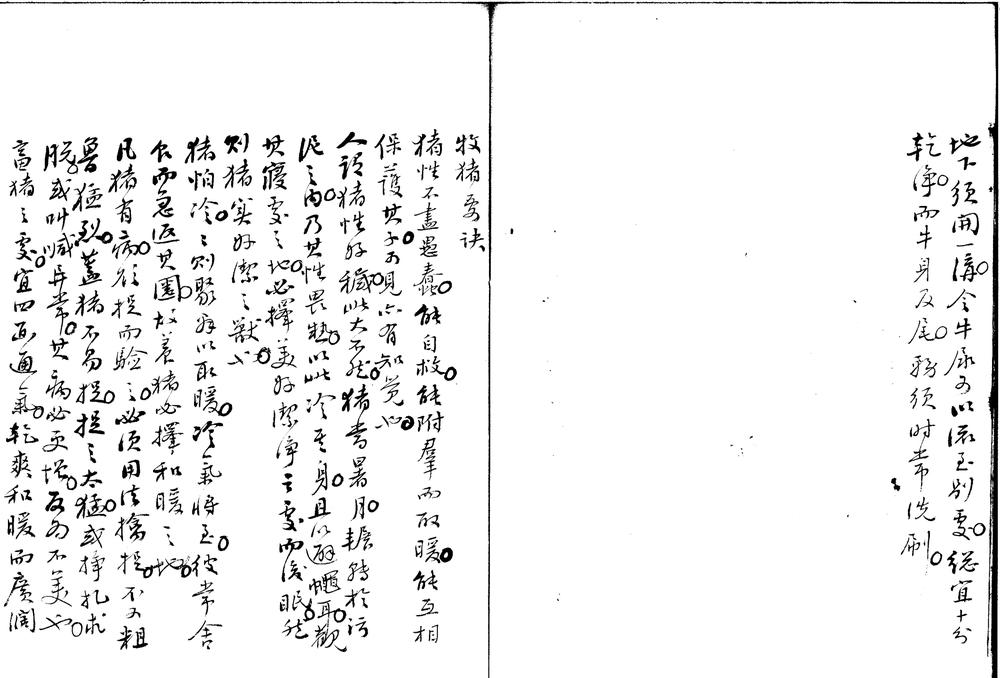 地下須開一溝。令牛尿可以流至別處。總宜十分
乾淨。而牛身及尾。務須时常洗刷。
牧猪要诀
猪性不盡愚蠢。能自救。能附羣而取暖。能互相
保護其子。可見亦有知觉也。
人謂猪性好穢。此大不然。猪當暑月。輾转於污
泥之内。乃其性畏热。以此冷其身。且以避蠅耳。觀
其寢處之地。必擇美好潔淨之處而後眠。然
则猪实好潔之獸也。
猪怕冷。冷则聚好以取暖。冷氣將至。彼常舍
食而急返其圈。故養猪必擇和暖之地。
凡猪有病。欲捉而驗之。必须用法擒捉。不可粗
魯猛烈。蓋猪不易捉。捉之太猛。或挣扎求
脱。或叫喊异常。其病必更增。反为不美也。
畜猪之處。宜四面通氣。乾爽和暖而廣濶